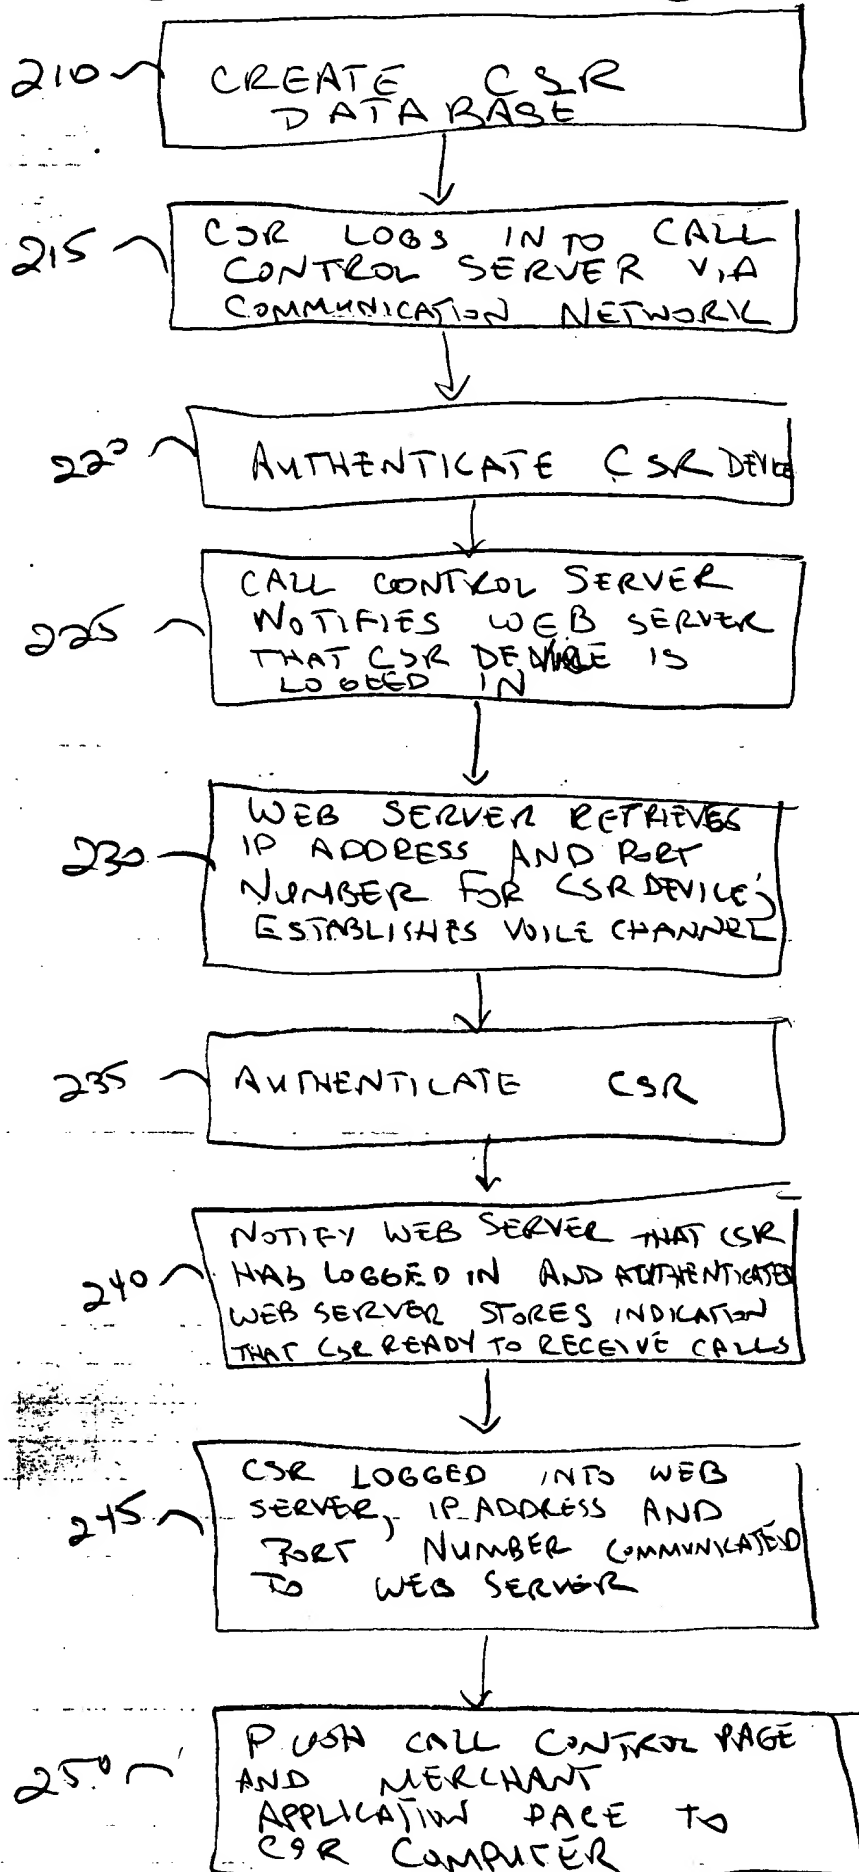 210
CREATE CSR
DATABASE
215
CSR LOGS INTO CALL
CONTROL SERVER VIA
COMMUNICATION NETWORK
220
AUTHENTICATE CSR DEVICE
225
CALL CONTROL SERVER
NOTIFIES WEB SERVER
THAT CSR DEVICE IS
LOGGED IN
230
WEB SERVER RETRIEVES
IP ADDRESS AND PORT
NUMBER FOR CSR DEVICE;
ESTABLISHES VOICE CHANNEL
235
AUTHENTICATE CSR
240
NOTIFY WEB SERVER THAT CSR
HAS LOGGED IN AND AUTHENTICATED
WEB SERVER STORES INDICATION
THAT CSR READY TO RECEIVE CALLS
245
CSR LOGGED INTO WEB
SERVER, IP ADDRESS AND
PORT NUMBER COMMUNICATED
TO WEB SERVER
250
PUSH CALL CONTROL PAGE
AND MERCHANT
APPLICATION PAGE TO
CSR COMPUTER